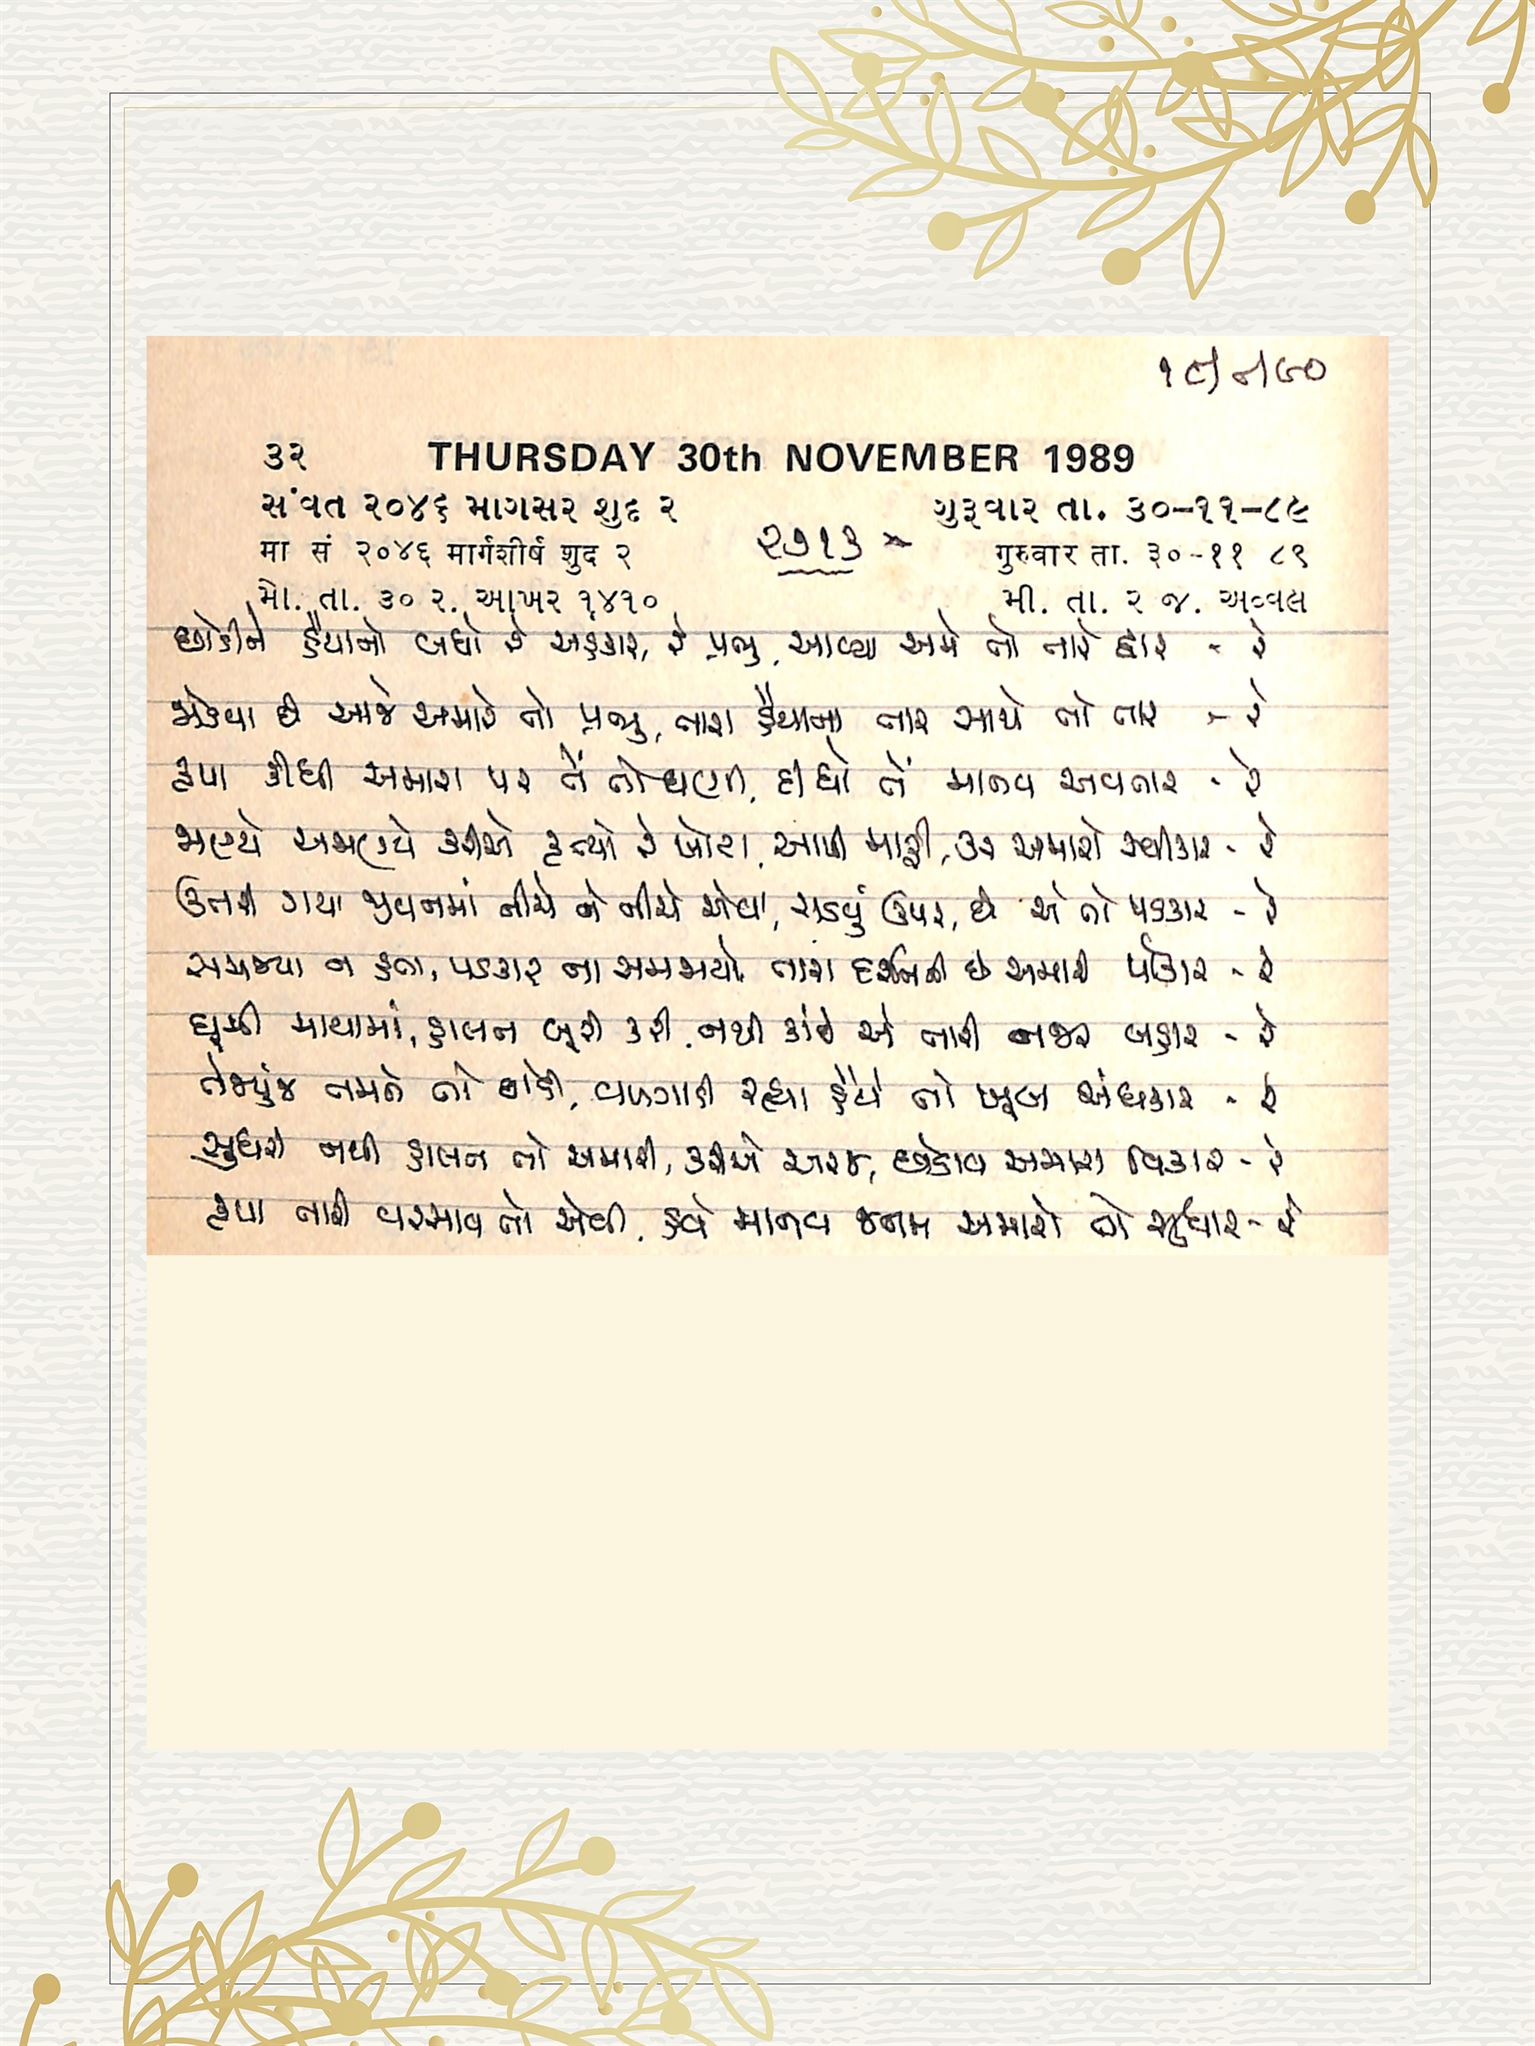 ૧૯/૯/૯૦
૩૨ THURSDAY 30th NOVEMBER 1989
સંવત ૨૦૪૬ માગસર શુદ ૨ ગુરૂવાર તા. ૩૦-૧૧-૮૯
૨૭૧૩
मा सं २०४६ मार्गशीर्ष शुद २ गुरुवार ता. ३०-११ ८९
મો. તા. ૩૦ ર. આખર ૧૪૧૦ મી. તા. ૨ જ. અવ્વલ
છોડીને હૈયાનો બધો રે અહંકાર, રે પ્રભુ, આવ્યા અમે તો તારે દ્વાર - રે
જોડવા છે આજે અમારે તો પ્રભુ, તારા હૈયાના તાર સાથે તો તાર - રે
કૃપા કીધી અમારા પર તેં તો ઘણી, દીધો તેં માનવ અવતાર - રે
જાણ્યે અજાણ્યે કરીએ કૃત્યો રે ખોટા, આપી માફી, કર અમારો સ્વીકાર - રે
ઉતરી ગયા જીવનમાં નીચે ને નીચે એવા, ચડવું ઉપર, છે એ તો પડકાર - રે
સમજ્યા ન હતા, પડકાર ના સમજાયો, તારા દર્શનની છે અમારી પોકાર - રે
ઘૂમી માયામાં, હાલત બૂરી કરી, નથી કાંઈ એ તારી નજર બહાર - રે
તેજપુંજ તમને તો છોડી, વળગાડી રહ્યા હૈયે તો ખૂબ અંધકાર - રે
સુધરી નથી હાલત તો અમારી, કરીએ અરજ, છોડાવ અમારા વિકાર - રે
કૃપા તારી વરસાવ તો એવી, હવે માનવ જનમ અમારો તો સુધાર - રે